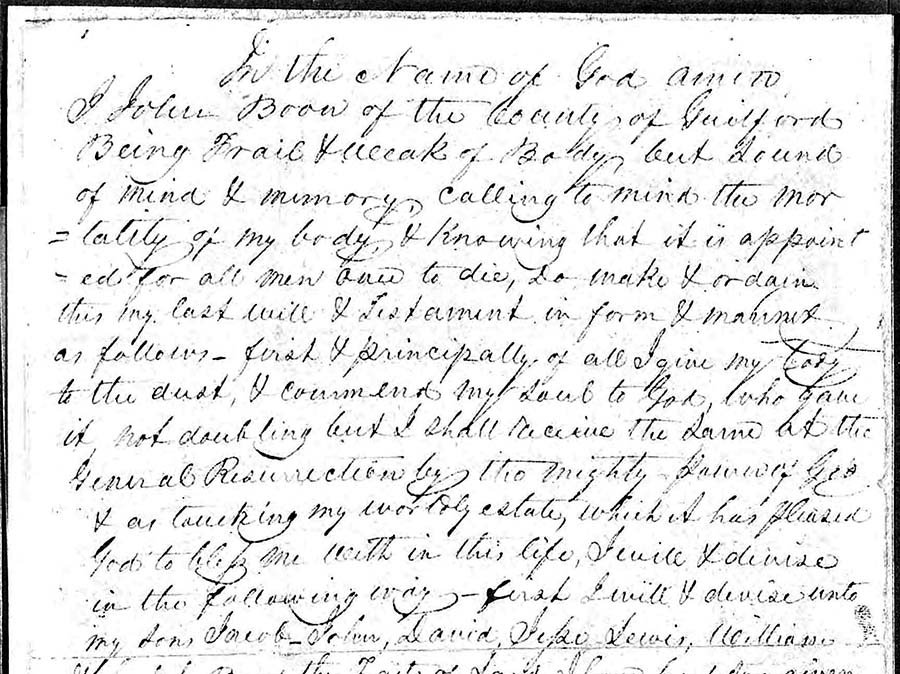 In the Name of God amen
I John Boon of the County of Guilford
Being Frail & Weak of Body, but Sound
of mind & memory, calling to mind the mor
= tality of my body & Knowing that it is appoint
- ed for all men once to die, do make & ordain
this my last will & Testament in form & manner
as follows - first & principally of all I give my body
to the dust, & commend my Soul to God, who gave
it not doubting but I shall receive the Same at the
General Resurrection by the mighty Power of God
& as touching my worldly estate, which it has pleased
God to bless me With in this life, I will & devise
in the following way - first I will & devise unto
my Sons Jacob - John, David, Jesse Lewis, William
the of Land I